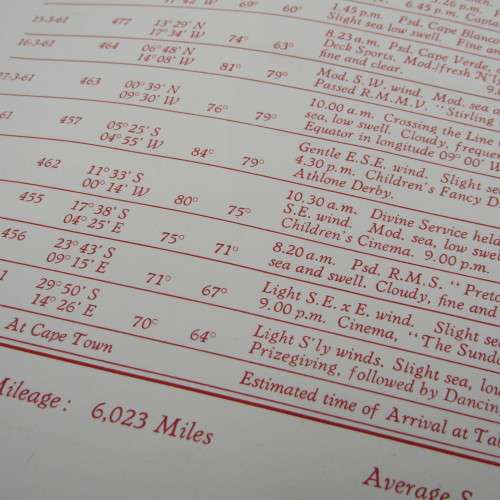 17° 42' W 69° 60°
1.45 p.m. Psd. Cape Blanc
Slight sea low swell. Fine
15-3-61 477 13° 29' N
17° 34' W 74° 63°
8.23 a.m. Psd. Cape Verde,
Deck Sports. Mod./fresh
fine and clear.
16-3-61 464 06° 48' N
14° 08' W 81° 79°
Mod. S.W. wind. Mod. sea
Passed R.M.M.V. "Stirling
7-3-61 463 00° 39' N
09° 30' W 76° 79°
10.00 a.m. Crossing the Line
sea, low swell. Cloudy, frequ
Equator in longitude 09° 00' W
61 457 05° 25' S
04° 55' W 84° 79°
Gentle E.S.E. wind. Slight se
4.30 p.m. Children's Fancy D
Athlone Derby.
462 11° 33' S
00° 14' W 80° 75°
10.30 a.m. Divine Service hel
S.E. wind. Mod. sea, low swel
Children's Cinema. 9.00 p.m.
455 17° 38' S
04° 25' E 75° 71°
8.20 a.m. Psd. R.M.S. "Pret
sea and swell. Cloudy, fine and
456 23° 43' S
09° 15' E 71° 67°
Light S.E. x E. wind. Slight se
9.00 p.m. Cinema, "The Sund
1 29° 50' S
14° 26' E 70° 64°
Light S'ly winds. Slight sea, low
Prizegiving, followed by Dancin
At Cape Town
Estimated time of Arrival at Tab
Mileage: 6,023 Miles
Average S